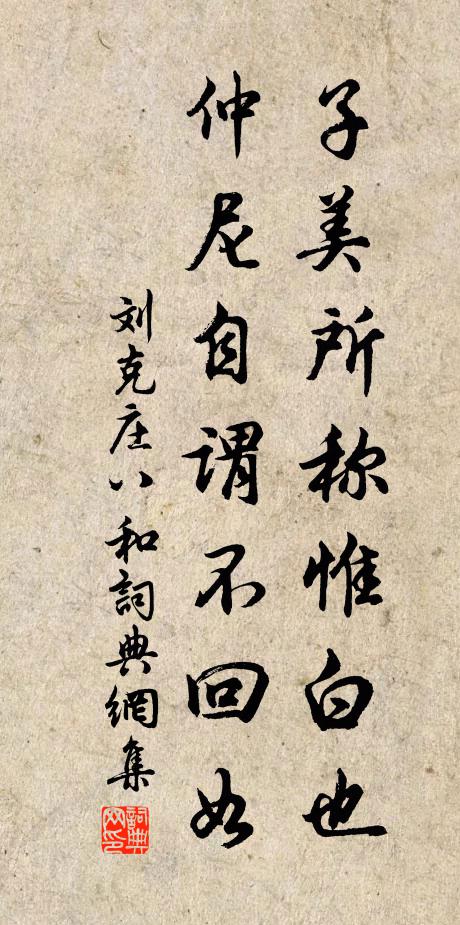 子美所称惟白也
仲尼自谓不回如
刘克庄八和詞典網集
詞典
网印